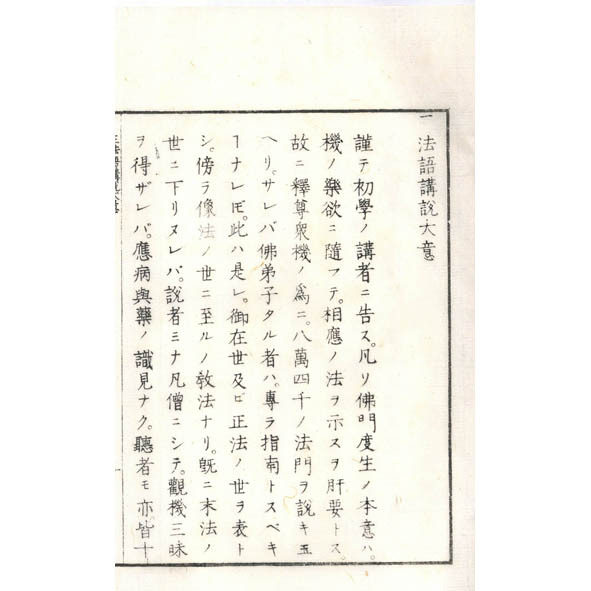 一 法語講説大意
謹テ初學ノ講者ニ告ス。凡リ佛門度生ノ本意ハ。
機ノ樂欲ニ隨フテ。相應ノ法ヲ示スヲ肝要トス。
故ニ釋尊衆機ノ爲ニ。八萬四千ノ法門ヲ説キ玉
ヘリ。サレバ佛弟子タル者ハ。專ラ指南トスベキ
ヿナレ𪜈。此ハ是レ。御在世及ビ正法ノ世ヲ表ト
シ。傍ラ像法ノ世ニ至ルノ敎法ナリ。旣ニ末法ノ
世ニ下リヌレバ。說者ミナ凡僧ニシテ。觀機三昧
ヲ得ザレバ。應病與藥ノ識見ナク。聽者モ亦皆十